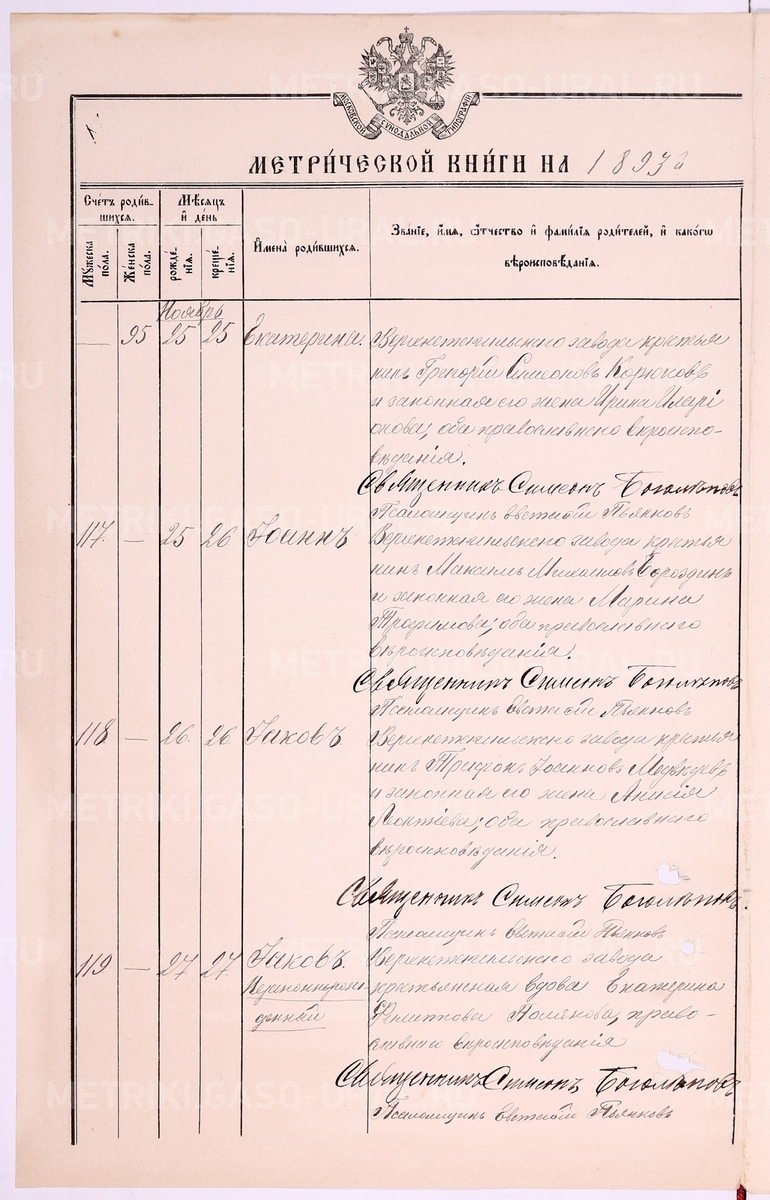 МОСКОВСКОЙ СѴНОДАЛЬНОЙ ТИПОГРАФІИ
МЕТРИ́ЧЕСКОЙ КНИ́ГИ НА 1893
Сче́тъ роди́в-
шихся.
Мꙋ́жеска по́ла.
Же́нска по́ла.
Мѣ́сяцъ
и҆ де́нь
рожде́-
нїя.
креще́-
нїя.
И҆мена̀ роди́вшихся.
Зва́нїе, и҆́мя, ѻ҆́тчество и҆ фами́лїя роди́телей, и҆ како́гѡ
вѣроисповѣ́данїя.
Ноябрь
— 95 25 25 Екатерина. Верхнетагильскаго завода крестья
нинъ Григорій Симеоновъ Корюковъ
и законная его жена Ирина Иларі
онова; оба православнаго вѣроиспо-
вѣданія.
Священникъ Симеонъ Боголѣповъ
Псаломщикъ Евгеній Пьянковъ
117. — 25 26 Іоаннъ Верхнетагильскаго завода крестья
нинъ Максимъ Михаиловъ Бороздинъ
и законная его жена Марина
Трофимова; оба православнаго
вѣроисповѣданія.
Священникъ Симеонъ Боголѣповъ
Псаломщикъ Евгеній Пьянковъ
118 — 26 26 Іаковъ Верхнетагильскаго завода крестья
нинъ Трифонъ Іоанновъ Медвѣдевъ
и законная его жена Анисія
Леонтіева; оба православнаго
вѣроисповѣданія.
Священникъ Симеонъ Боголѣповъ.
Псаломщикъ Евгеній Пьянковъ
119 — 27 27 Іаковъ. Верхнетагильскаго завода
Незаконнорож- крестьянская вдова Екатерина
денный Полякова, право-
славнаго вѣроисповѣданія
Священникъ Симеонъ Боголѣповъ
Псаломщикъ Евгеній Пьянковъ
METRIKI.GASO-URAL.RU